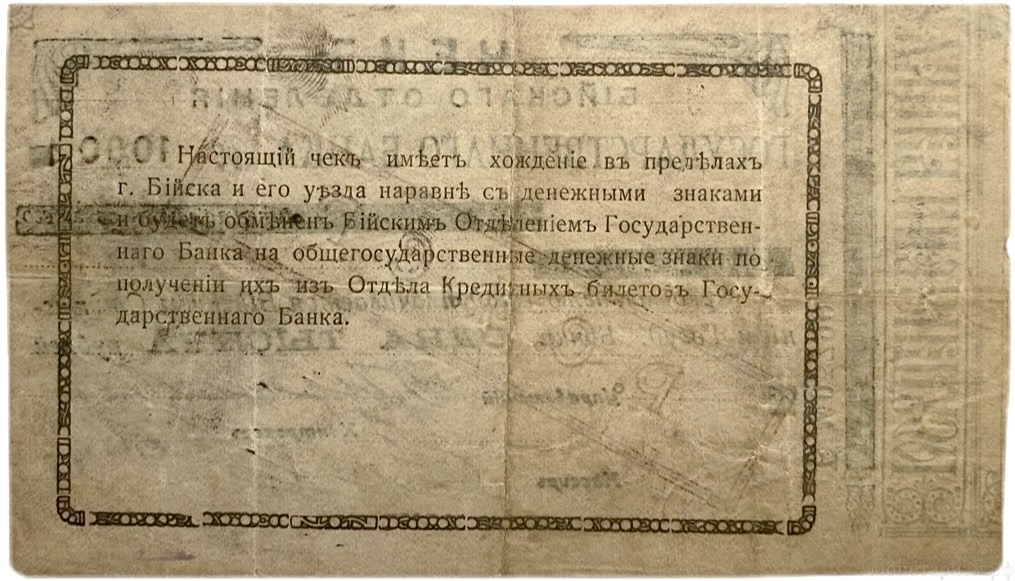 Настоящій чекъ имѣетъ хожденіе въ предѣлахъ
г. Бійска и его уѣзда наравнѣ съ денежными знаками
и будетъ обмѣненъ Бійскимъ Отдѣленіемъ Государствен-
наго Банка на общегосударственные денежные знаки по
полученіи ихъ изъ Отдѣла Кредитныхъ билетовъ Госу-
дарственнаго Банка.